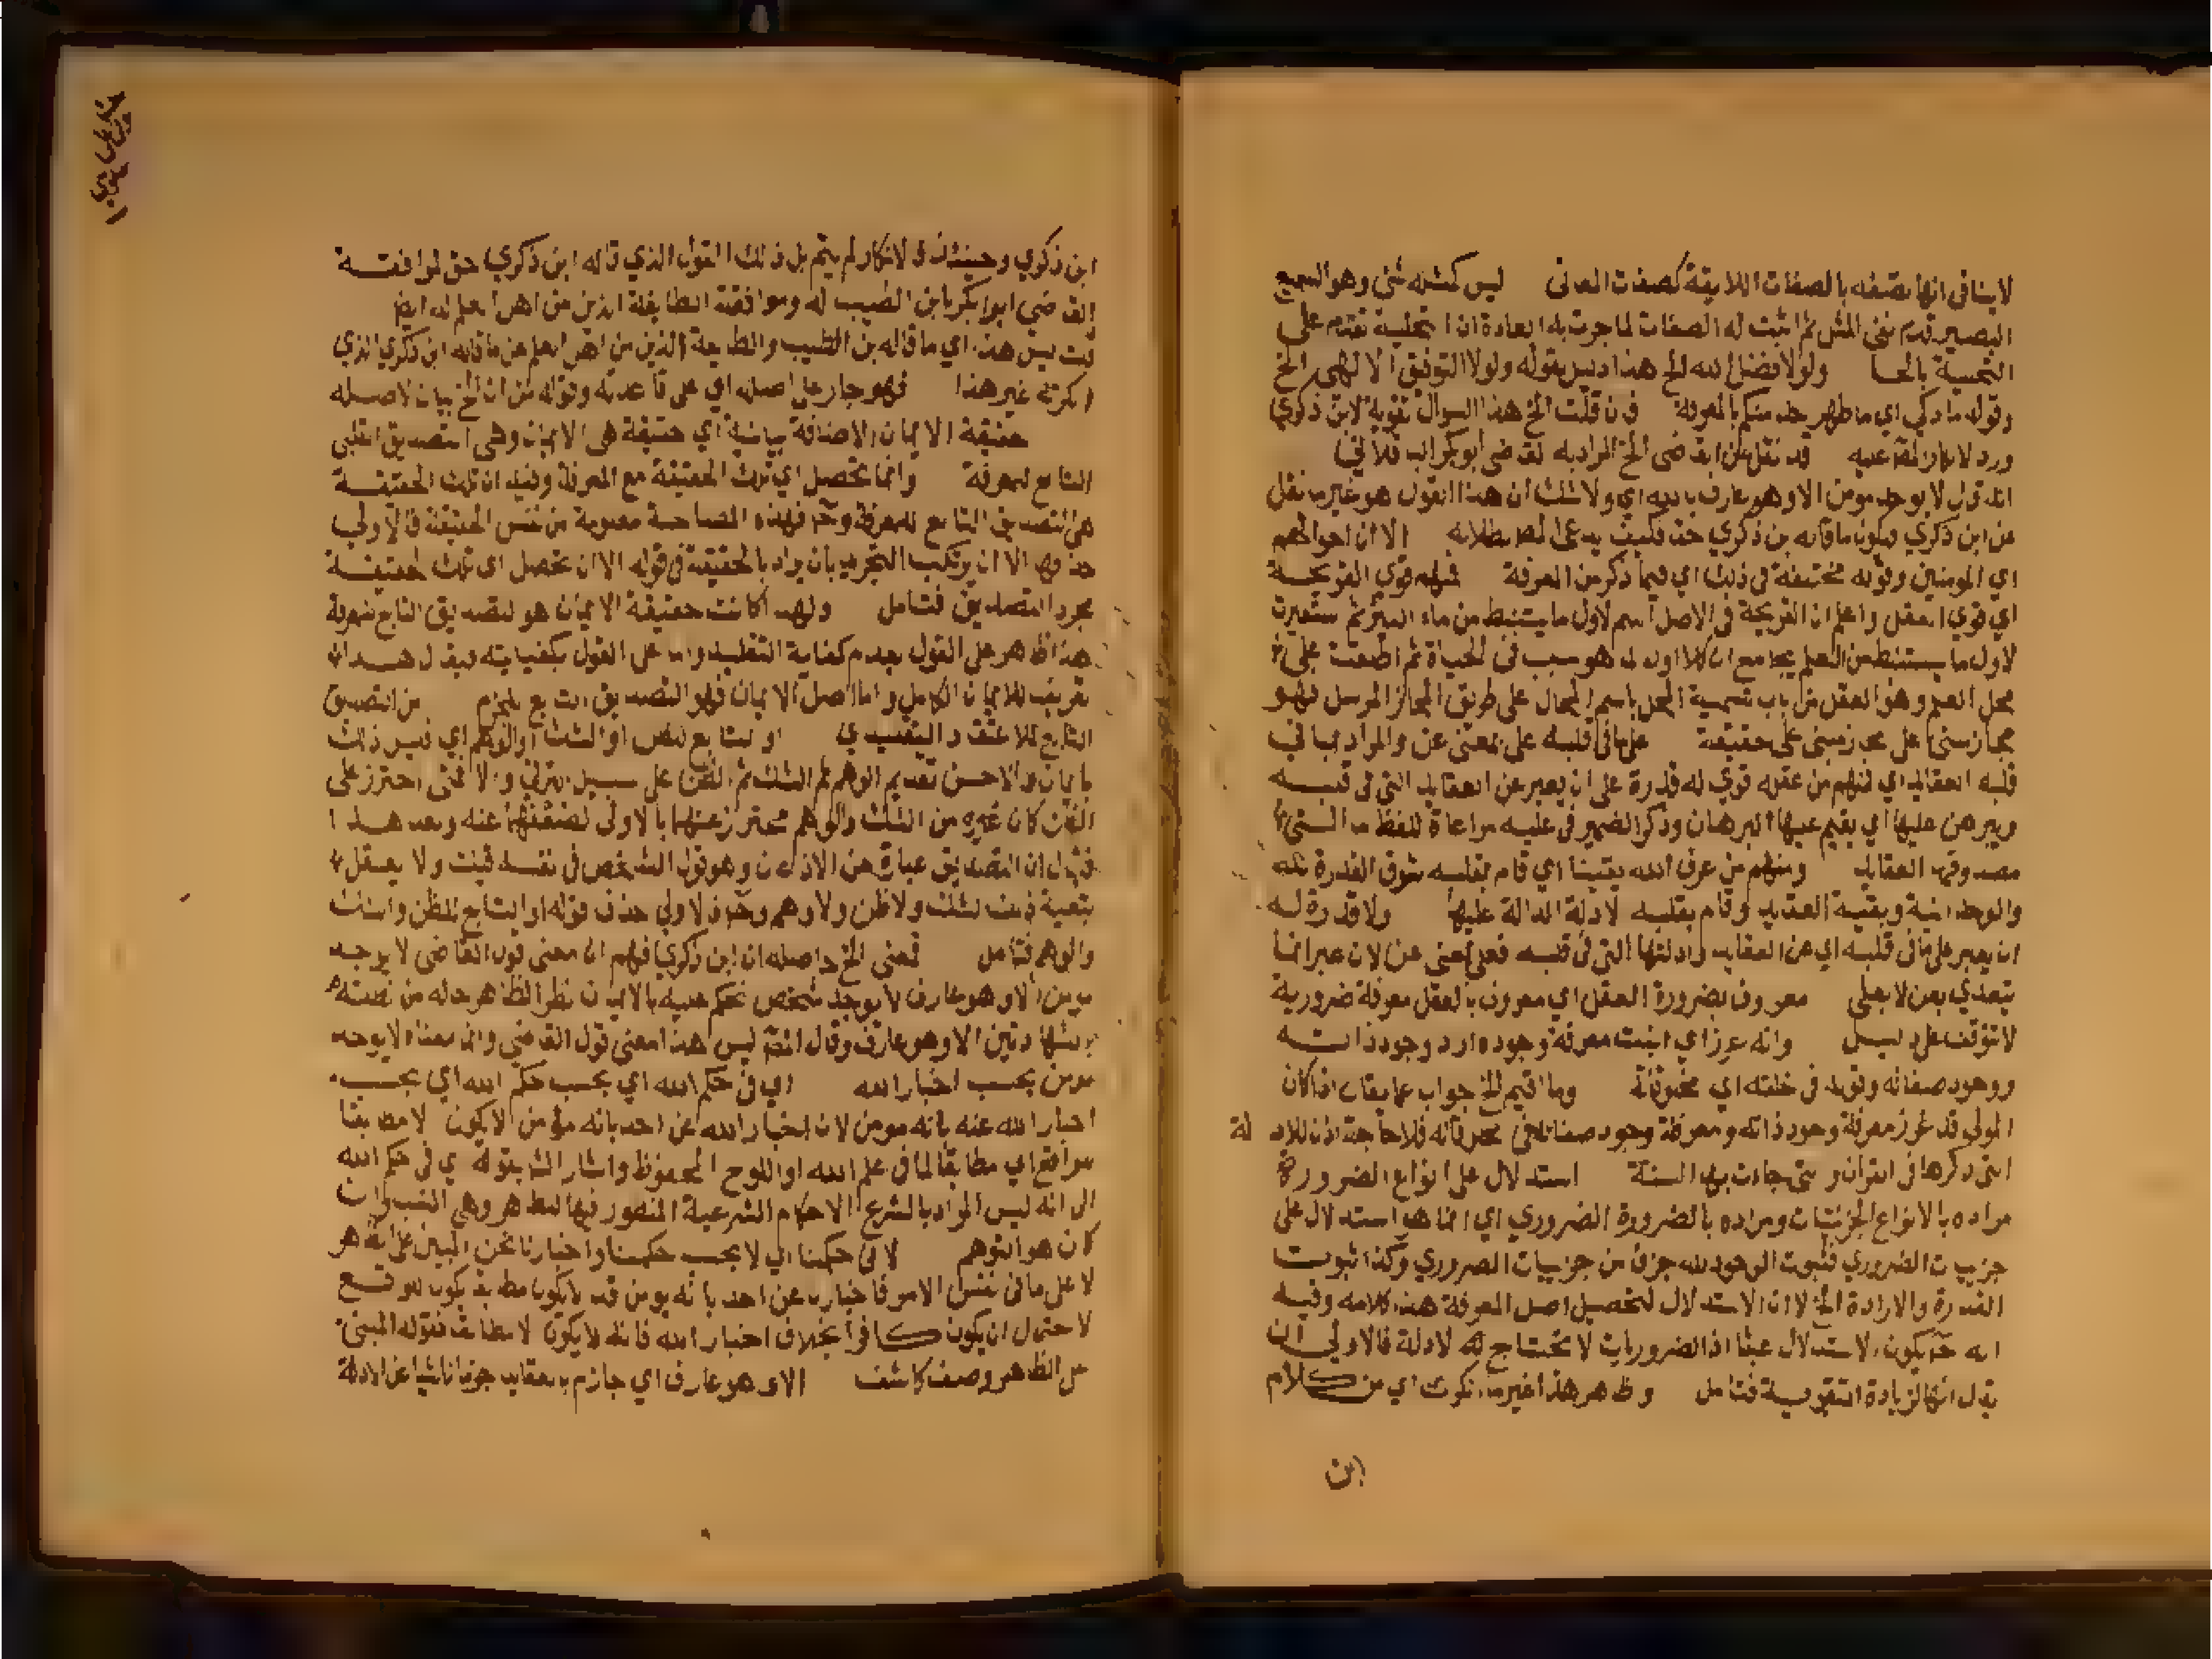 لاينافى انها بصفه بالصفات اللايقة كصفات المعانى ليس كمثله شئ وهو السميع
البصير قدم نفى المثل ثم اثبت له الصفات لما جرت به العادة ان التخلية تقدم على
التحلية بالحا ولولا فضل الله الخ هذا دليس بقوله ولولا التوفيق الالهى الخ
وقوله ما زكى اى ما طهر احد منكم بالمعرفة فان قلت الخ هذا السوال تقوية لابن ذكرى
ورد لانكار المص عليه قد نقل عن القاضى الخ المراد به القاضى ابو بكر الباقلانى
انه قال لا يوجد مومن الا وهو عارف بالله اى ولا شك ان هذا القول هو غير ما نقل
عن ابن ذكري فيكون ما قاله بن ذكري حق فكيف يدعى المص بطلانه الا ان احوالهم
اي المومنين وقوله مختلفة فى ذلك اي فيما ذكر من المعرفة فمنهم قوي القريحة
اي قوي العقل واعلم ان القريحة فى الاصل اسم لاول ما يستنبط من ماء البير ثم استعيرت
لاول ما يستنبط من العلم بجامع ان كلا اول لما هو سبب فى الحياة ثم اطلقت على
محل العلم وهو العقل من باب تسمية المحل باسم الحال على طريق المجاز المرسل فهو
مجاز مبنى على مجاز مبنى على حقيقة على ما فى قلبه على بمعنى عن والمراد بما فى
قلبه العقايد اي فمنهم من عقله قوي له قدرة على ان يعبر عن العقايد التى فى قلبه
ويبرهن عليها اي يقيم عليها البرهان وذكر الضمير فى عليه مراعاة للفظ ما التى
مصدوقها العقايد ومنهم من عرف الله يقينا اي قام بقلبه ثبوت القدرة لله
والوحدانية وبقية العقايد وقام بقلبه الادلة الدالة عليها ولا قدرة له
ان يعبر على ما فى قلبه اي عن العقايد وادلتها التى فى قلبه فعلى بمعنى عن لان عبر انما
يتعدي بعن لا بعلى معروف بضرورة العقل اي معروف بالعقل معرفة ضرورية
لا تتوقف على دليل وانه عزز اي اثبت معرفة وجوده اراد وجود ذاته
ووجود صفاته وقوله فى خلقه اي مخلوقاته وما اقيم الخ جواب عما يقال اذا كان
المولى قد غرز معرفة وجود ذاته ومعرفة وجود صفاته فى مخلوقاته فلا حاجة اذن للادلة
التى ذكرها فى القران والتى جاءت بها السنة استدلال على انواع الضرورة
مراده بالانواع الجزئيات ومراده بالضرورة الضروري اي انما هو استدلال على
جزييات الضروري فثبوت الوجود لله جزئ من جزييات الضروري وكذا ثبوت
القدرة والارادة الخ لا ان الاستدلال لتحصيل اصل المعرفة هذا كلامه وفيه
انه ح يكون الاستدلال عبثا اذ الضروريات لا تحتاج الى الادلة فالاولى ان
يقال انها لزيادة التقوية فتامل وظاهر هذا غير ما انكرت اي من كلام
ابن
ابن ذكري وحينئذ فالانكار لم يتم بل ذلك القول الذي قاله ابن ذكري حق لموافقة
القاضى ابو بكر بابن الطيب له وموافقة الطايفة الذين من اهل العلم له ايضا
قلت ليس هذا اي ما قاله بن الطيب والطايفة الذين من اهل العلم عن ما قاله ابن ذكري الذي
انكرته غير هذا فهو جار على اصله اي على قاعدته وقوله من ان الخ بيان لاصله
حقيقة الايمان الاضافة بيانية اي حقيقة هى الايمان وهى التصديق القلبى
التابع للمعرفة وانما تحصل اي تلك الحقيقة مع المعرفة وفيه ان تلك الحقيقة
هى التصديق التابع للمعرفة وح فهذه المصاحبة معلومة من نفس الحقيقة فالاولى
حذفها الا ان يرتكب التجريد بان يراد بالحقيقة فى قوله الا ان تحصل اى تلك الحقيقة
مجرد التصديق فتامل ولهذا كانت حقيقة الايمان هو التصديق التابع للمعرفة
هذا ظاهر على القول بعدم كفاية التقليد واما على القول بكفايته فيقال هذا
تعريف للايمان الكامل واما اصل الايمان فهو التصديق التابع للجزم من التصديق
التابع للاعتقاد التقليدي او التابع للظن او الشك او الوهم اي فليس ذلك
بايمان والاحسن تقديم الوهم ثم الشك ثم الظن على سبيل الترقى والا فمتى احترز على
الظن كان غيره من الشك والوهم محترز عنهما بالاولى لضعفهما عنه وبعد هذا
فيقال ان التصديق عبارة عن الاذعان وهو قول الشخص فى نفسه قبلت ولا يعقل
تبعية ذلك لشك ولا ظن ولا وهم وح فالاولى حذف قوله او التابع للظن والشك
والوهم فتامل فمعنى الخ حاصله ان ابن ذكري فهم ان معنى قول القاضى لا يوجد
مومن الا وهو عارف لا يوجد شخص نحكم عليه بالايمان نظرا لظاهر حاله من نطقه
بالشهادتين الا وهو عارف وقال المص ليس هذا معنى قول القاضى وانما معناه لا يوجد
مومن بحسب اخبار الله اي فى حكم الله اي بحسب حكم الله اي بحسب
اخبار الله عنه بانه مومن لان اخبار الله عن احد بانه مومن لا يكون الا مطابقا
للواقع اي مطابقا لما فى علم الله او اللوح المحفوظ واشار المص بقوله اي فى حكم الله
الى انه ليس المراد بالشرع الاحكام الشرعية المنظور فيها للظاهر وهى النسب وان
كان هو المتوهم لا فى حكمنا اي لا بحسب حكمنا واخبارنا نحن المبنى على الظاهر
لا على ما فى نفس الامر فاخبارنا عن احد بانه مومن قد لا يكون مطابقا للواقع
لاحتمال ان يكون كافرا بخلاف اخبار الله فانه لا يكون الا مطابقا فقوله المبنى
على الظاهر وصف كاشف الا وهو عارف اي جازم بالعقايد جزما ناشيا عن الادلة